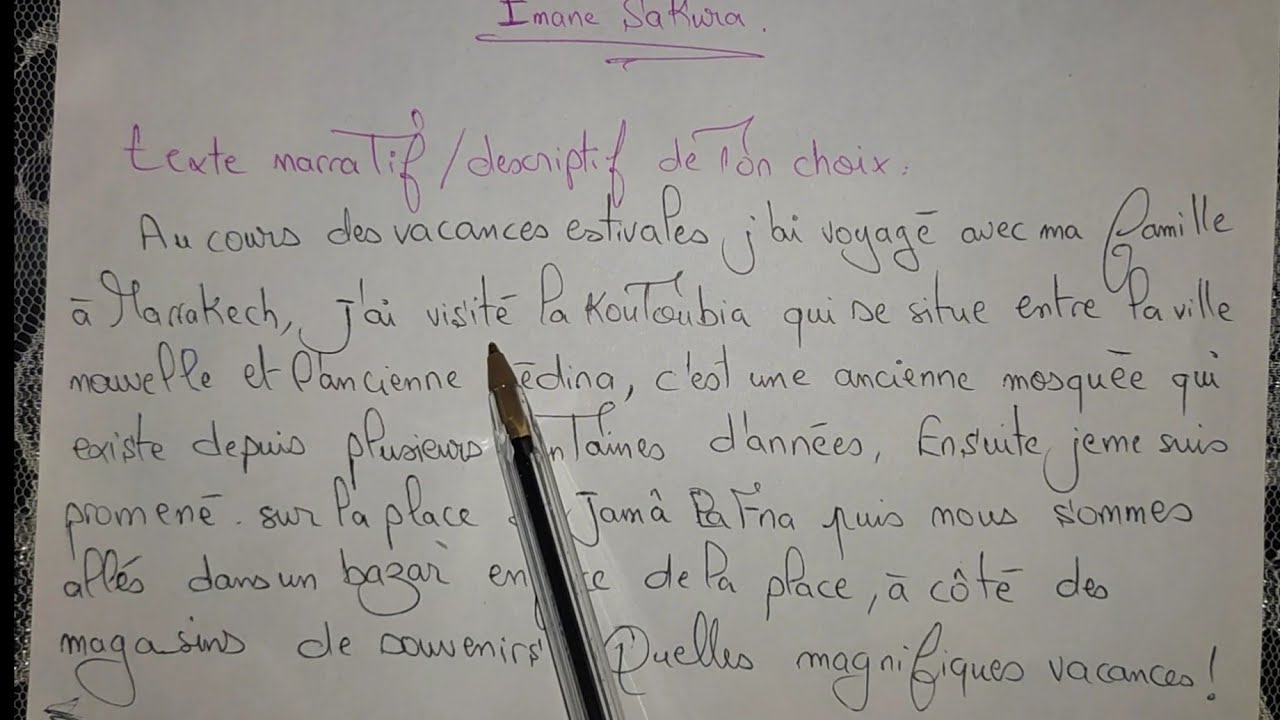 Imane Sakura.
texte narratif/descriptif de ton choix:
Au cours des vacances estivales, j'ai voyagé avec ma famille
à Marrakech, j'ai visité la Koutoubia qui se situe entre la ville
nouvelle et l'ancienne édina, c'est une ancienne mosquée qui
existe depuis plusieurs ntaines d'années, Ensuite, je me suis
promené. sur la place Jamâ La Fna puis nous sommes
allés dans un bazar en ce de la place, à côté des
magasins de souvenirs Quelles magnifiques vacances!